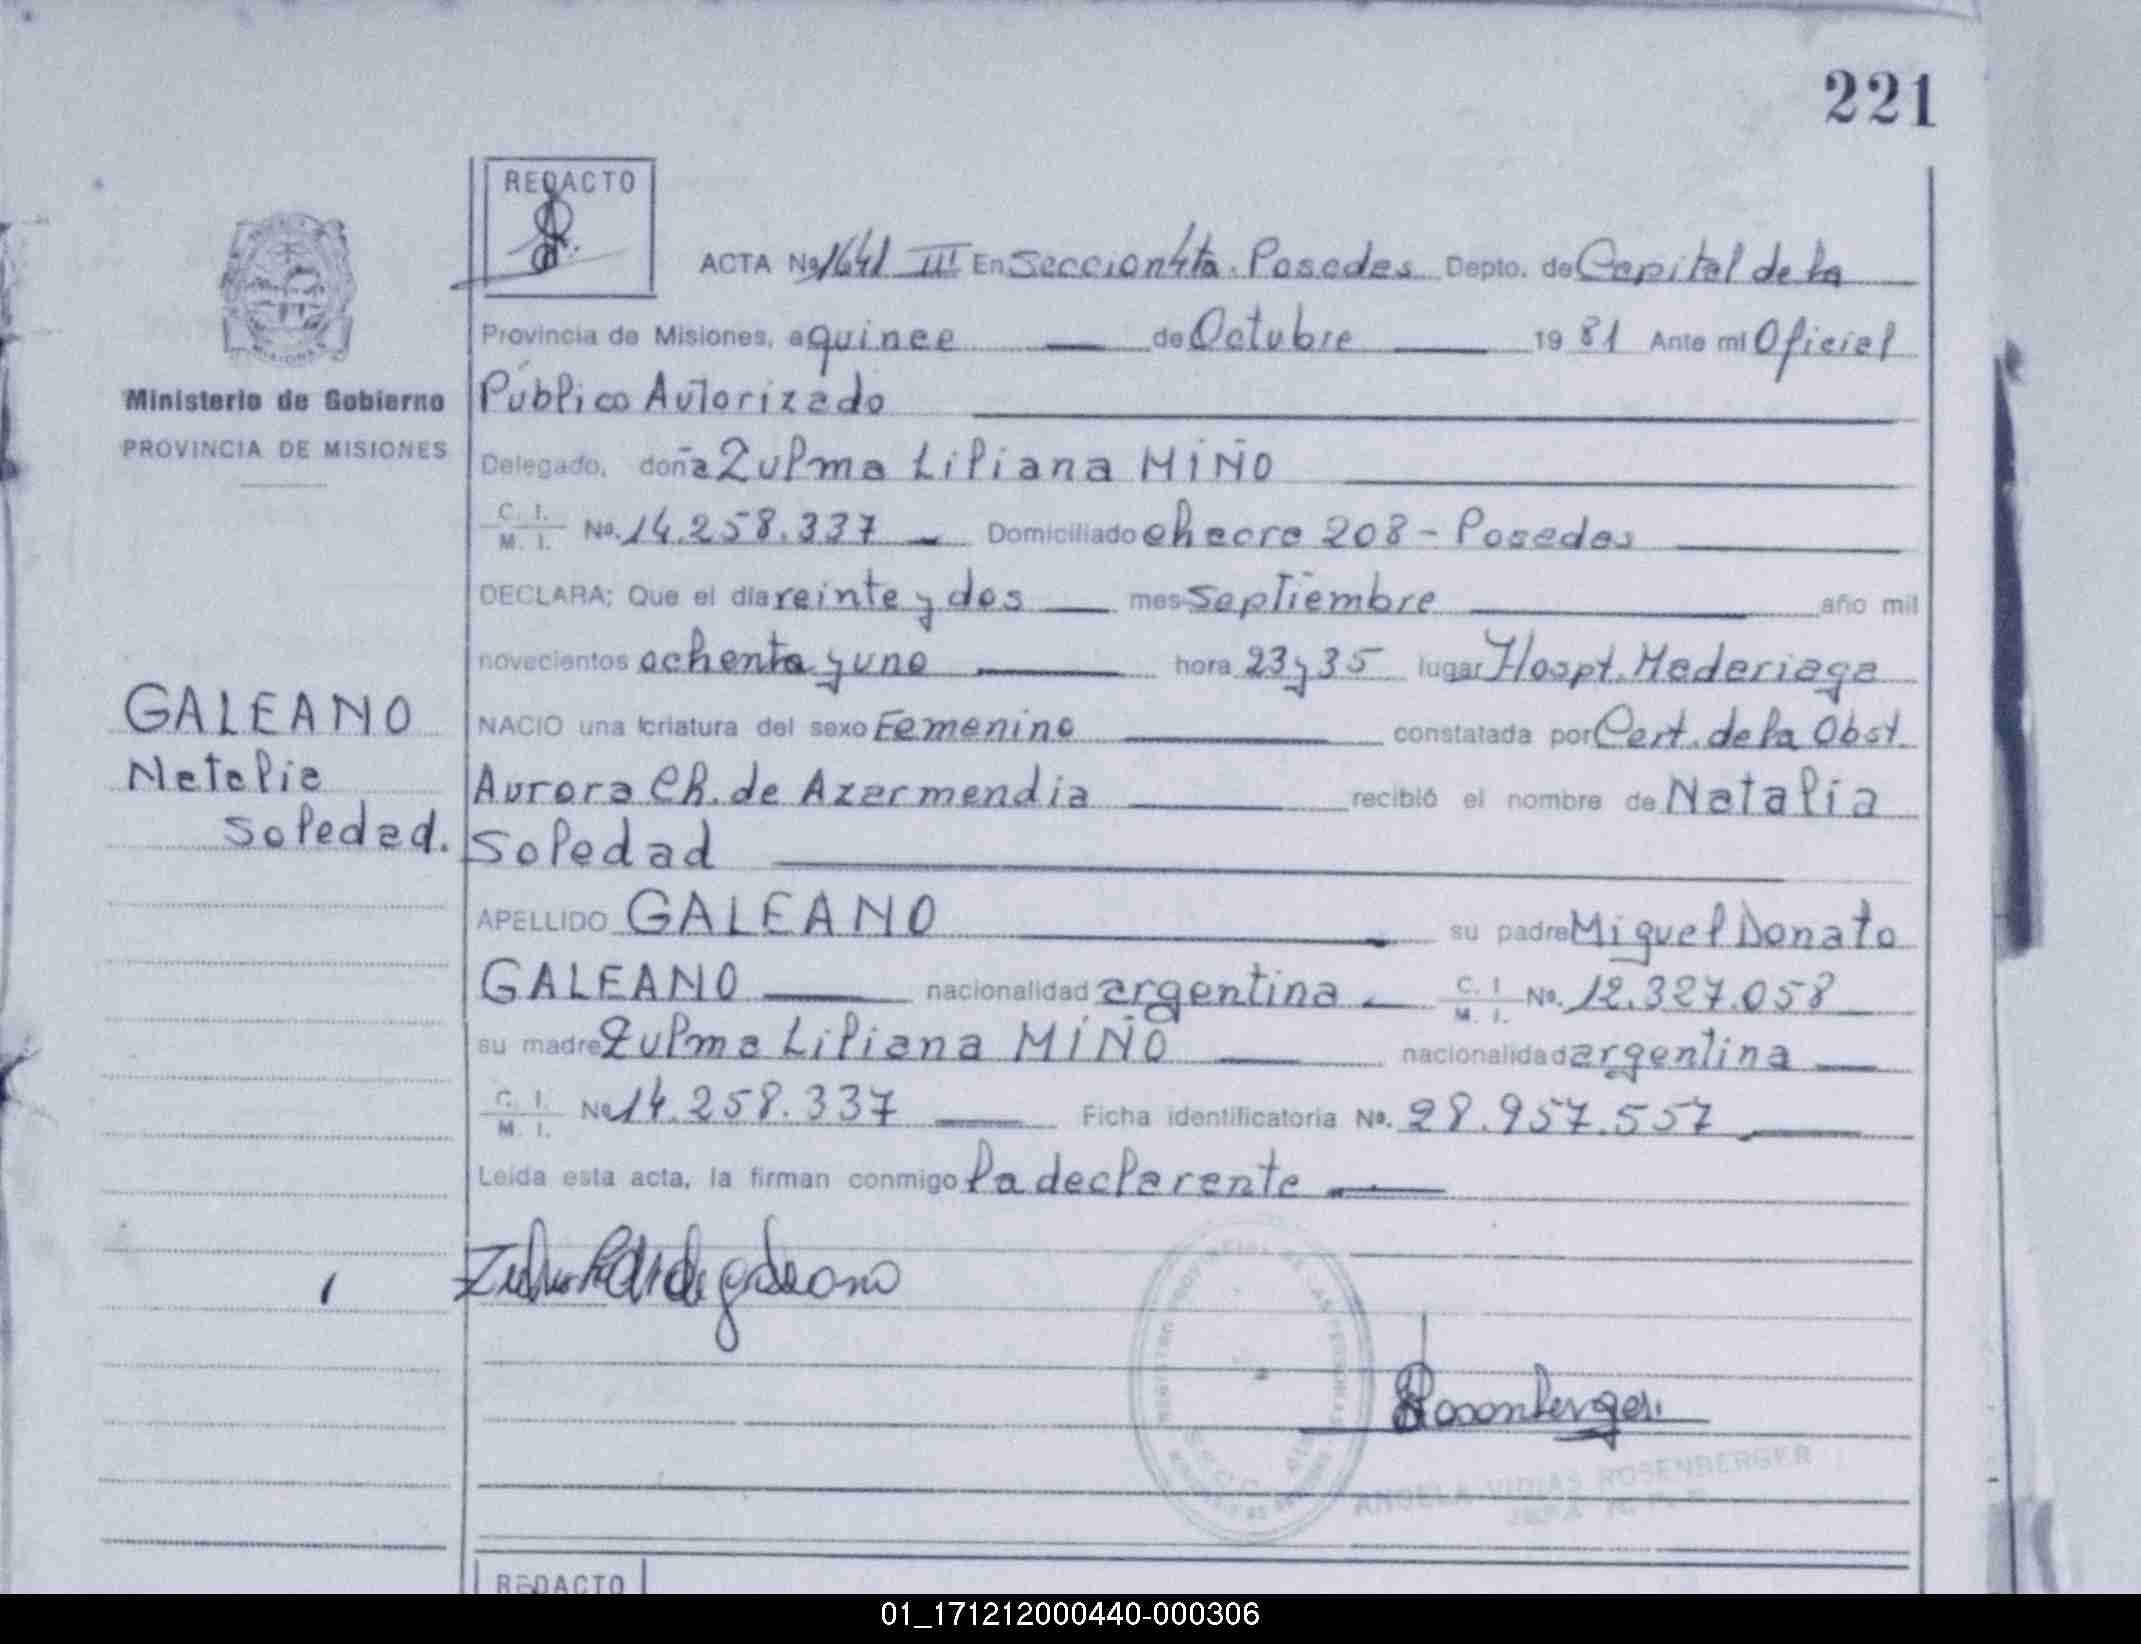 221
REDACTO
ACTA No 1641 III En Sección 4ta. Posadas Depto. de Capital de la
Provincia de Misiones, a quince de Octubre 1981 Ante mi Oficial
Público Autorizado
Ministerio de Gobierno
PROVINCIA DE MISIONES
Delegado, doña Zulma Liliana MIÑO
C. I.
M. I. No. 14.258.337 Domiciliado chacra 208 - Posadas
DECLARA; Que el día veinte y dos mes Septiembre año mil
novecientos ochenta y uno hora 23 y 35 lugar Hospt. Madariaga
GALEANO
Natalia
Soledad.
NACIO una criatura del sexo Femenino constatada por Cert. de la Obst.
Aurora Ch. de Azarmendia recibió el nombre de Natalia
Soledad
APELLIDO GALEANO su padre Miguel Donato
GALEANO nacionalidad argentina C. I
M. I. No. 12.327.058
su madre Zulma Liliana MIÑO nacionalidad argentina
C. I.
M. I. No 14.258.337 Ficha identificatoria No. 28.957.557
Leída esta acta, la firman conmigo la declarante
de galeano
Rosenberger
ANGELA VIDIAS ROSENBERGER
REDACTO
01_171212000440-000306